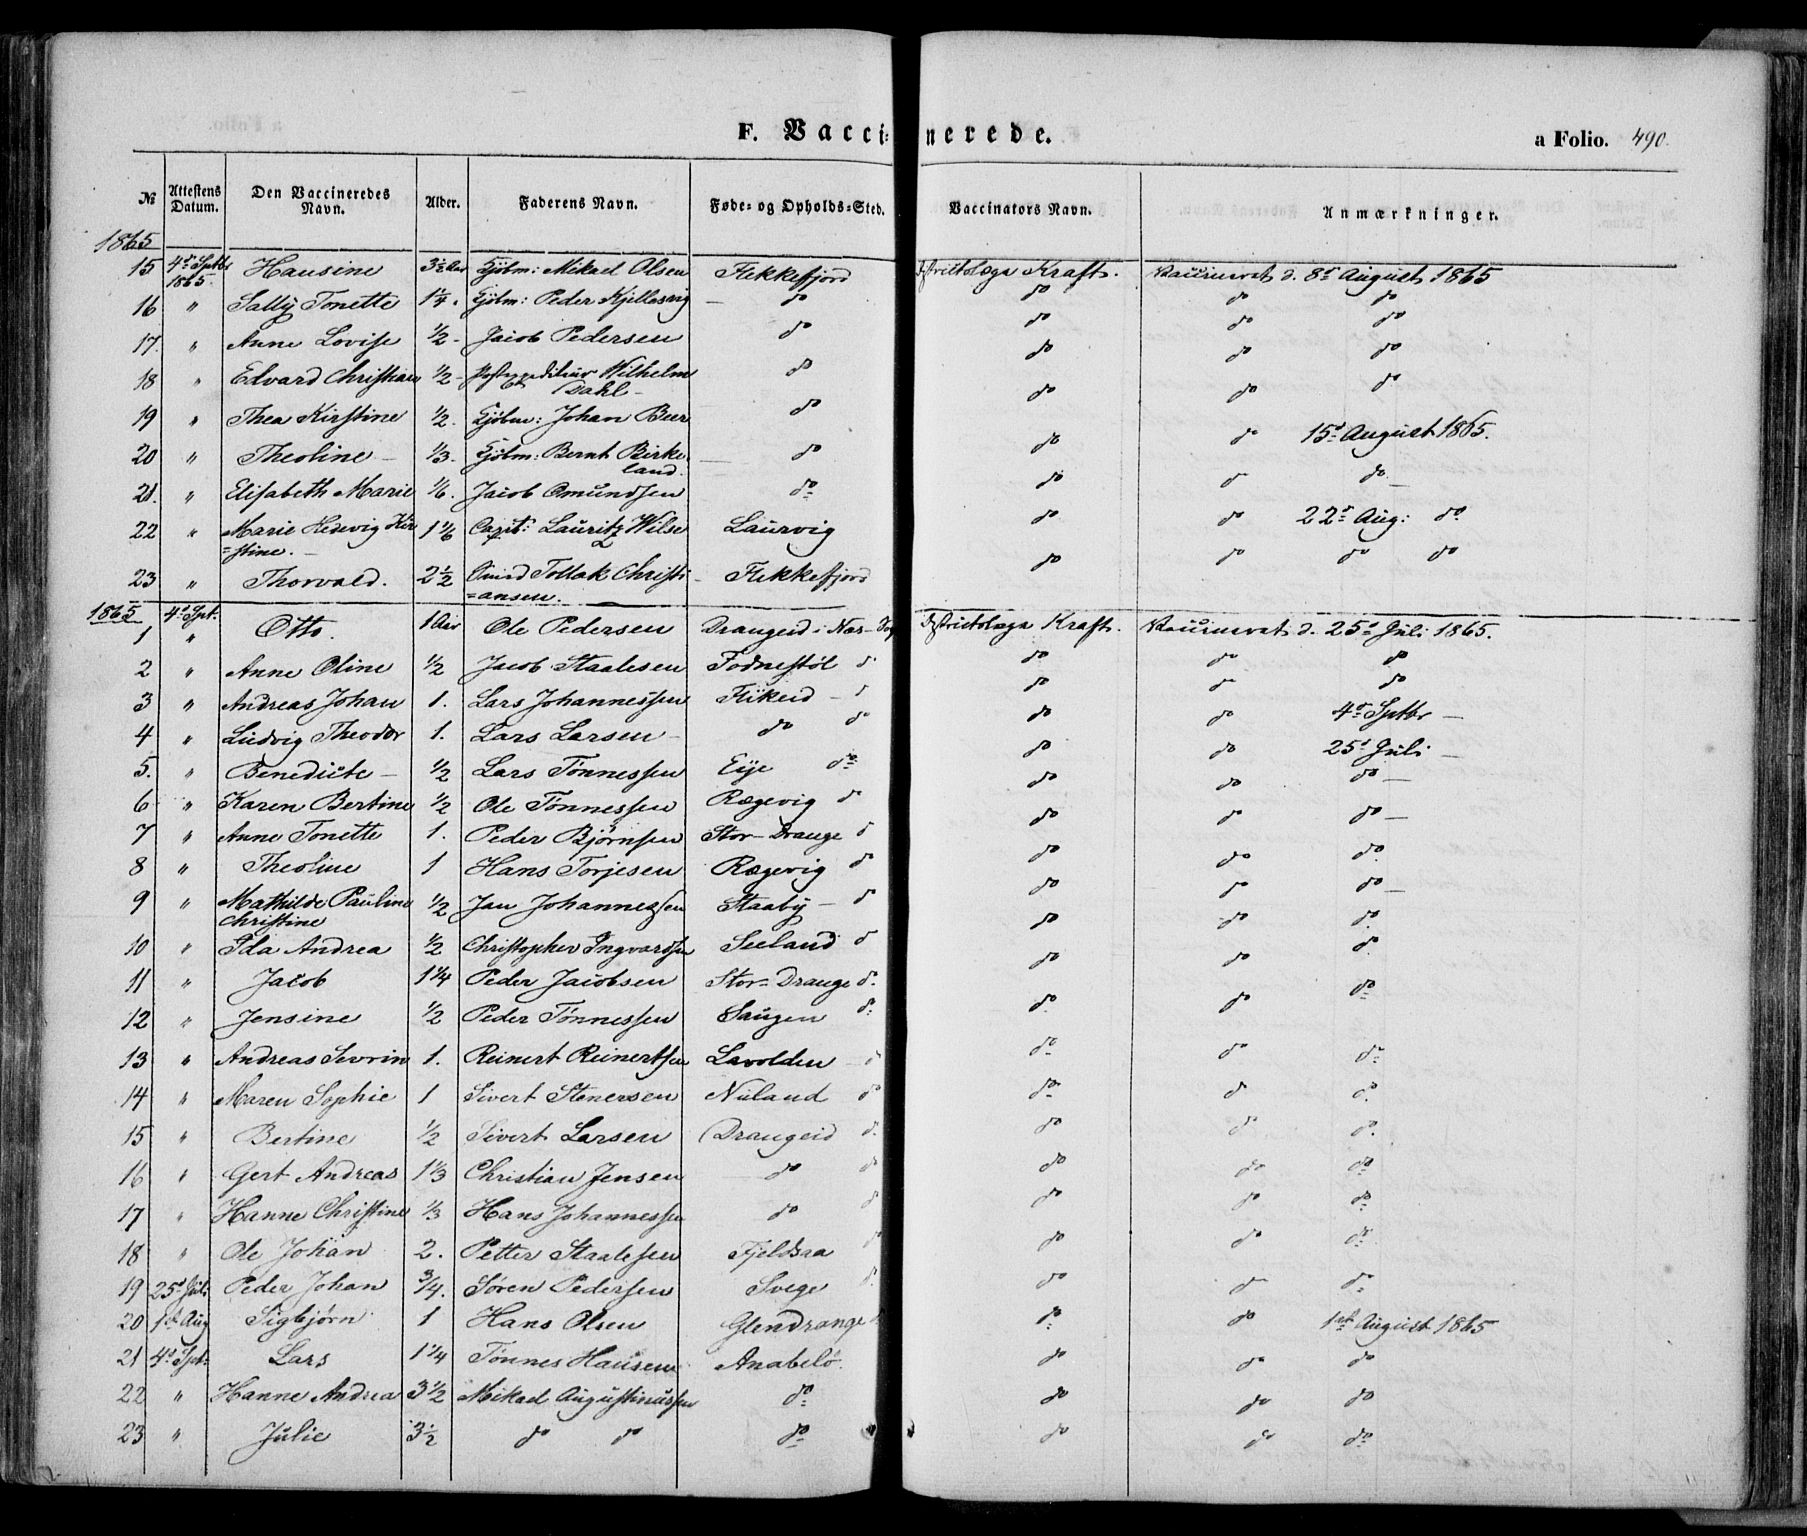 F. Vaccinerede.
a Folio. 490.
№ Attestens Datum. Den Vaccineredes Navn. Alder. Faderens Navn. Føde- og Opholds-Sted. Vaccinators Navn. Anmærkninger.
1865
15 4de Sptbr 1865. Hansine 3½ Aar Kjøbm: Mikael Olsen Flekkefjord Districtslæge Kraft. Vaccineret d. 8de August 1865
16 " Sally Tonette 1¼. Kjøbm: Peder Kjellesvig — do do do do
17. " Anne Lovise ½ - Jacob Pedersen do do do do
18 " Edvard Christian ½ - Postexpeditør Wilhelm Dahl — do do do do
19 " Thea Kirstine ½. Kjøbm: Johan Beer do do do do
20 " Theoline — ⅓. Kjøbm: Bernt Birkeland. — do do do 15de August 1865.
21. " Elisabeth Marie ⅙. Jacob Omundsen do do do do
22 " Marie Hedevig Kir=stine. — 1⅙ Capit: Lauritz Wilse Laurvig do do 22de Aug: do
23 " Thorvald. 2½ Tollak Christi=ansen. Flekkefjord do do do do
1865
1 4de Spt: " Otto. 1 Aar Ole Pedersen Drangeid i Næs Districtslæge Kraft. Vaccineret d. 25de Juli 1865.
2 " Anne Oline ½ Jacob Staalesen Fodnestøl do do do do
3 " Andreas Johan 1. Lars Johannessen Flikeid — do do do do
4 " Ludvig Theodor 1. Lars Larsen — do do do do 4de Sptbr —
5. " Benedicte — ½ Lars Tønnessen Eije do do do 25de Juli —
6 " Karen Bertine ½ Ole Tønnessen Rægevig do do do do —
7 " Anne Tonette 1. Peder Bjørnsen Stor-Drange do do do do —
8 " Theoline 1 Hans Torjesen Rægevig do do do do
9 " Mathilde Pauline Christine ½ Jan Johannessen Staaby — do do do do —
10 " Ida Andrea ½ Christopher Ingvardsen Seeland do do do do
11 " Jacob 1¼ Peder Jacobsen Stor-Drange do. do do do
12 " Jensine ½ Peder Tønnessen Haugen do do do do
13 " Andreas Sevrin 1. Reinert Reinertsen Lavolden — do do do do
14 " Maren Sophie 1 Sivert Stenersen Nuland do do do do
15 " Bertine ½ Sivert Larsen Drangeid do do do do
16 " Gert Andreas 1⅓ Christian Jensen do do do do do
17 " Hanne Christine ⅓ Hans Johannessen do do do do do
18 " Ole Johan 2. Petter Staalesen Fjeldsaa do do do do
19 25de Juli Peder Johan ¾. Søren Pedersen Svege do do do do
20 1ste Aug Sigbjørn 1 Hans Olsen Glendrange do do do 1ste August 1865
21 4de Spt: Lars 1¼ Tønnes Hansen Anabelø do do do
22 " Hanne Andrea 3½ Mikael Augustinussen do do do do
23 " Julie 3½ do do do do do do